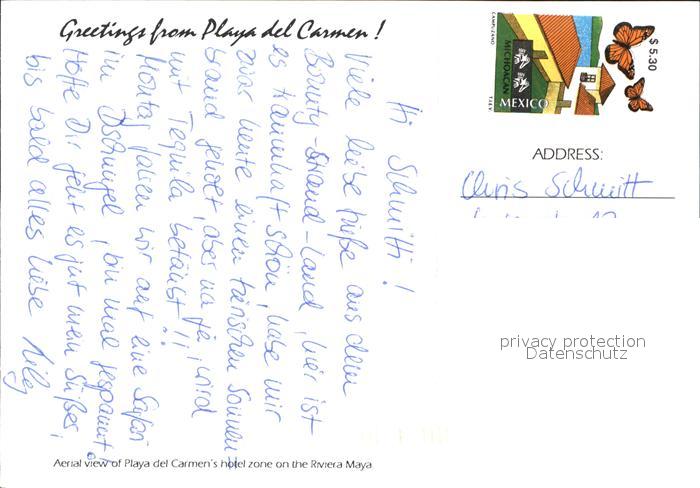 Greetings from Playa del Carmen !
Hi Schmitti !
Viele liebe Grüße aus dem
Bounty-Strand-Land, hier ist
es traumhaft schön, habe mir
zwar heute einen tierischen Sonnen-
brand geholt, aber na ja, wird
mit Tequila betäubt!!
Montag fahren wir auf eine Safari
im Dschungel, bin mal gespannt!
Hoffe Dir geht es gut mein Süßer,
bis bald alles liebe
CAMPUZANO
MICHOACAN
MEXICO
T.I.E.V.
$ 5.30
ADDRESS:
Chris Schmitt
privacy protection
Datenschutz
Aerial view of Playa del Carmen's hotel zone on the Riviera Maya